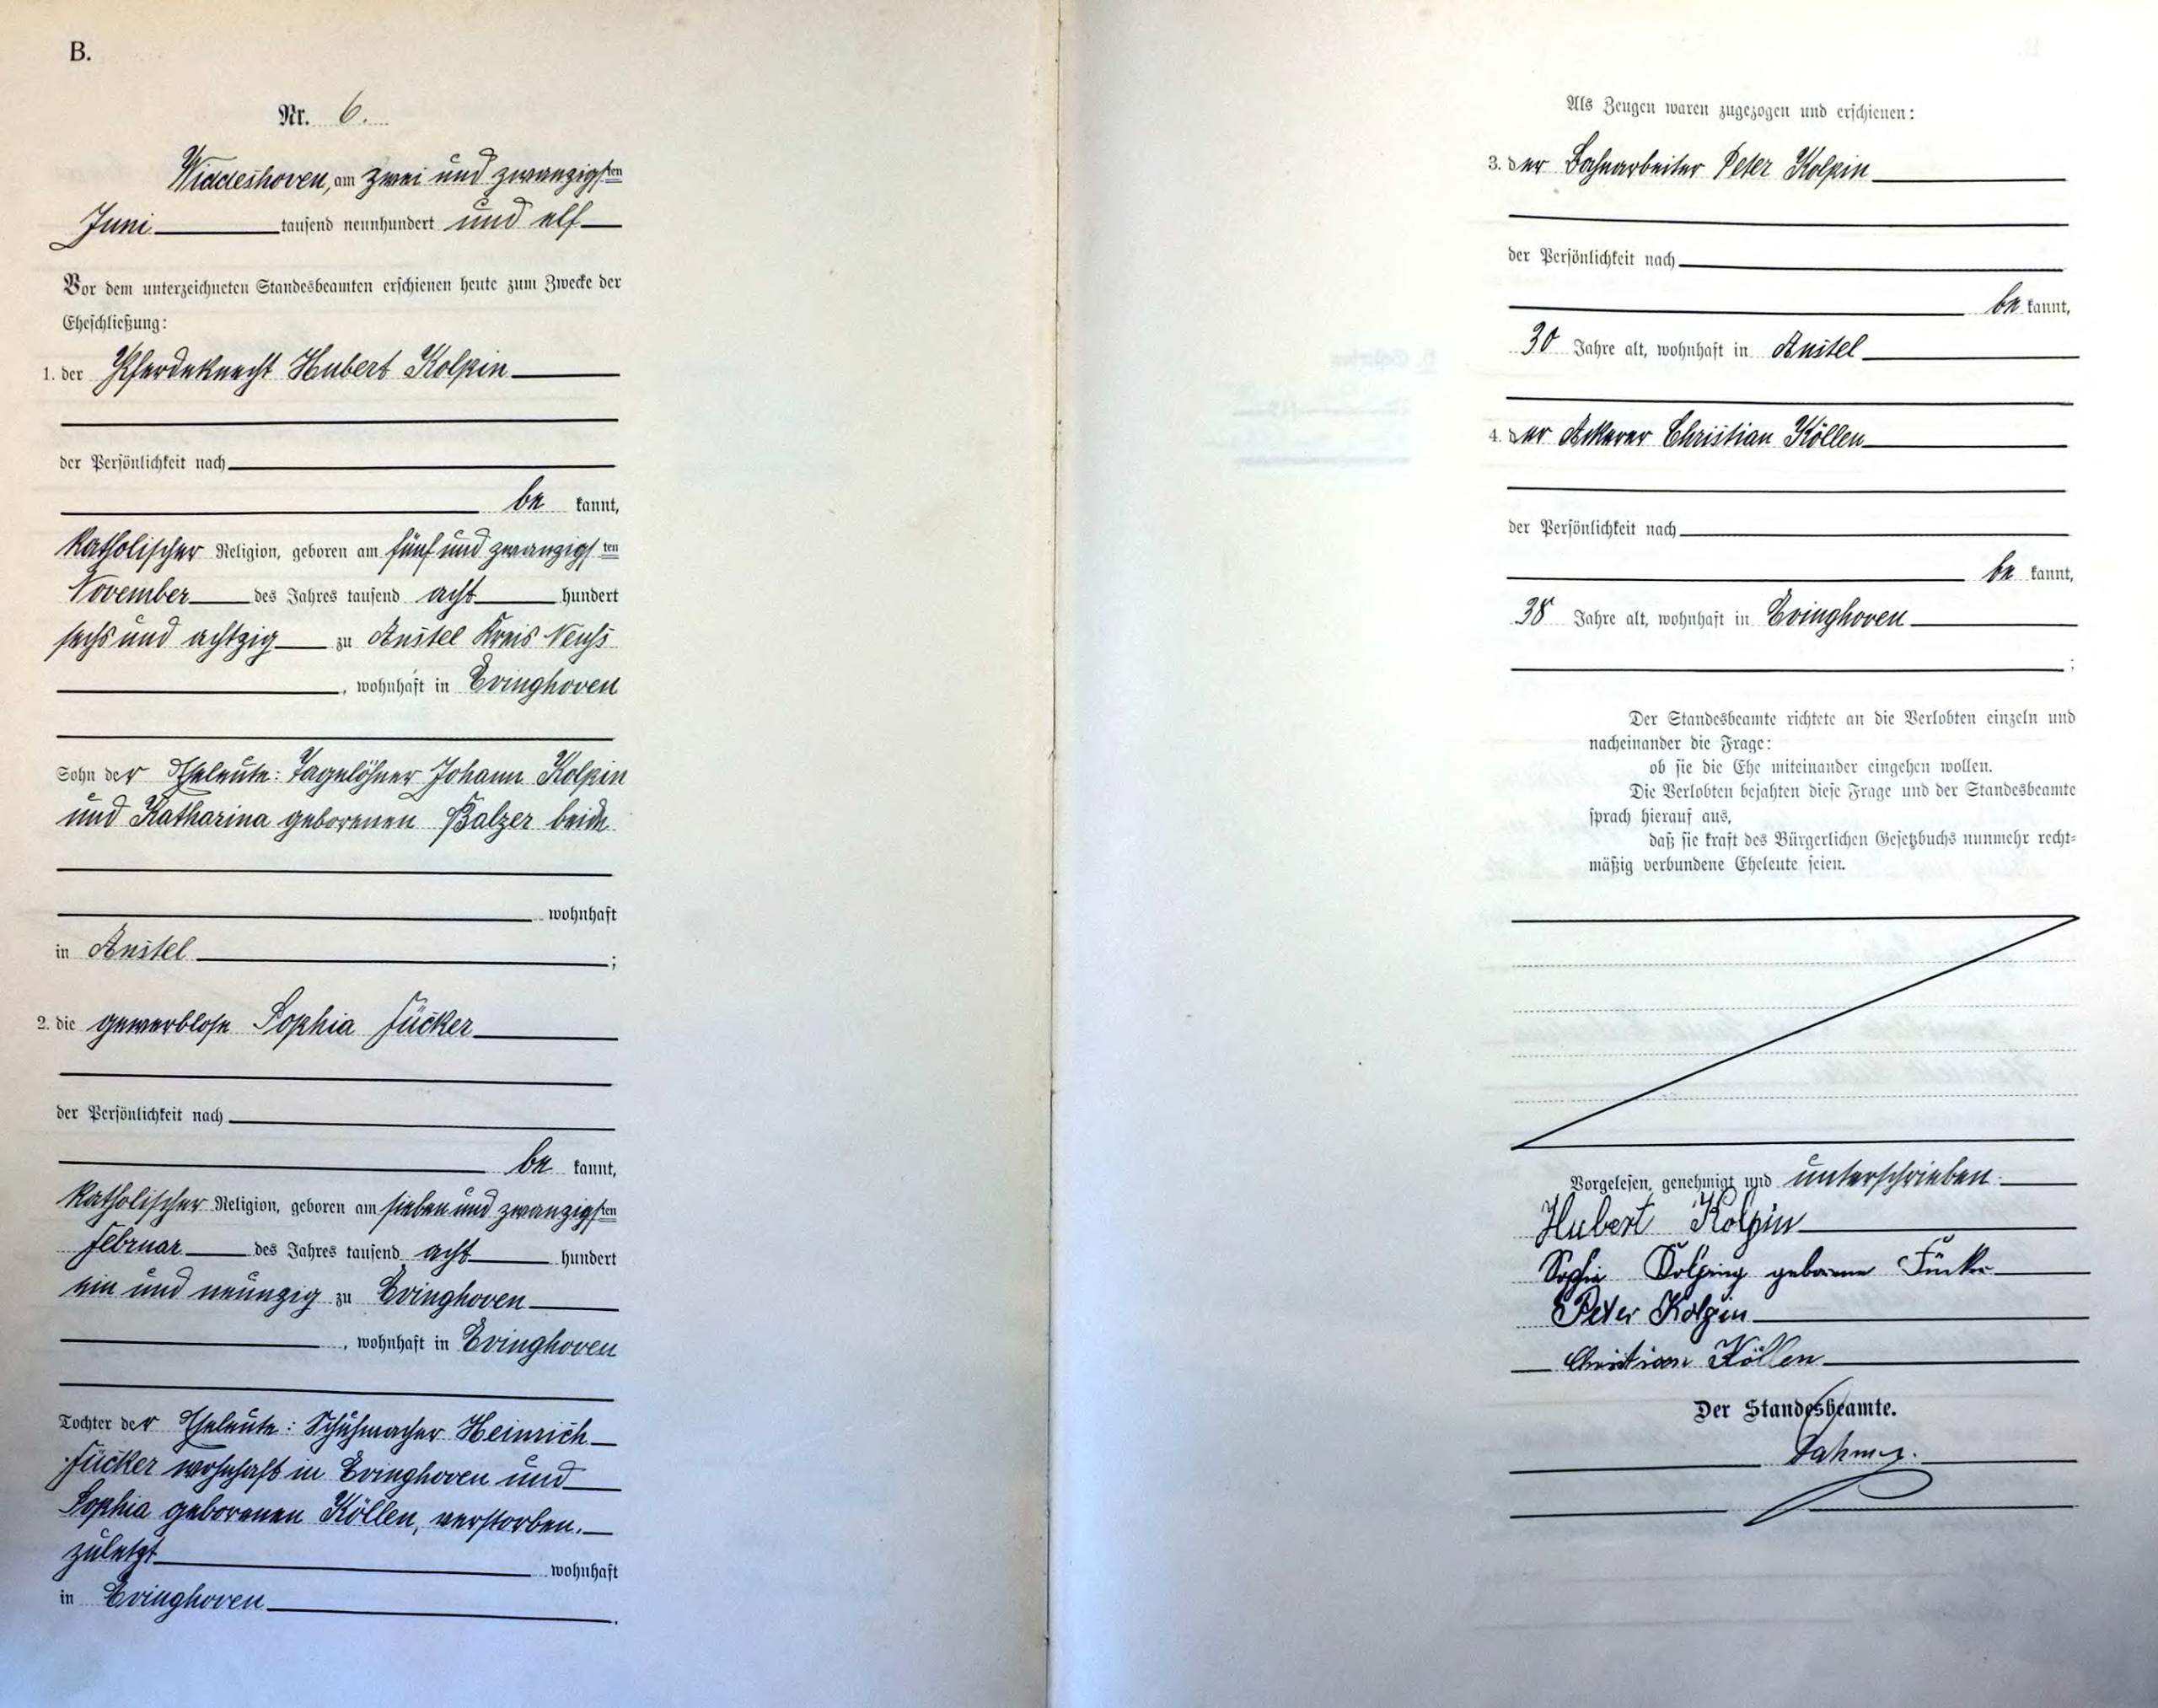 B.
Nr. 6.
Widdeshoven, am zwei und zwanzigsten
Juni tausend neunhundert und elf
Vor dem unterzeichneten Standesbeamten erschienen heute zum Zwecke der
Eheschließung:
1. der Pferdeknecht Hubert Kolpin
der Persönlichkeit nach
be kannt,
katholischer Religion, geboren am fünf und zwanzigsten
November des Jahres tausend acht hundert
sechs und achtzig zu Anstel Kreis Neuß
, wohnhaft in Evinghoven
Sohn der Eheleute: Tagelöhner Johann Kolpin
und Katharina geborenen Balzer beide
wohnhaft
in Anstel ;
2. die gewerblose Sophia Fücker
der Persönlichkeit nach
be kannt,
katholischer Religion, geboren am sieben und zwanzigsten
Februar des Jahres tausend acht hundert
ein und neunzig zu Evinghoven
, wohnhaft in Evinghoven
Tochter der Eheleute: Schuhmacher Heinrich
Fücker wohnhaft in Evinghoven und
Sophia geborenen Köllen, verstorben.
zuletzt wohnhaft
in Evinghoven .
Als Zeugen waren zugezogen und erschienen:
3. der Bahnarbeiter Peter Kolpin
der Persönlichkeit nach
be kannt,
30 Jahre alt, wohnhaft in Anstel
4. der Ackerer Christian Köllen
der Persönlichkeit nach
be kannt,
38 Jahre alt, wohnhaft in Evinghoven
;
Der Standesbeamte richtete an die Verlobten einzeln und
nacheinander die Frage:
ob sie die Ehe miteinander eingehen wollen.
Die Verlobten bejahten diese Frage und der Standesbeamte
sprach hierauf aus,
daß sie kraft des Bürgerlichen Gesetzbuchs nunmehr recht-
mäßig verbundene Eheleute seien.
Vorgelesen, genehmigt und unterschrieben.
Hubert Kolpin
Sophie Kolping geborene Fücker
Peter Kolpin
Christian Köllen
Der Standesbeamte.